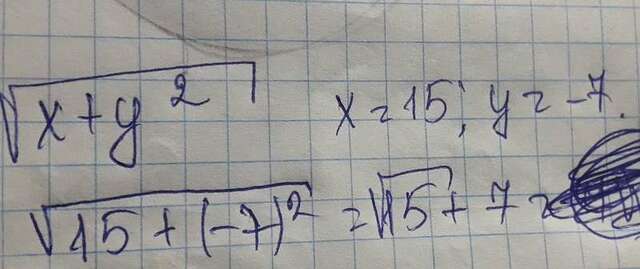 √(x+y²) x=15; y=-7.
√(15+(-7)²) = √15+7=